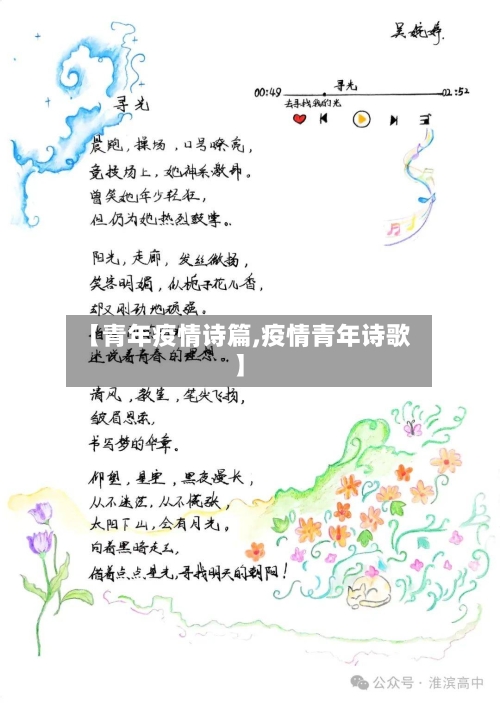 吴婉婷
寻光
00:49
02:52
去寻找我的光
寻光
晨跑，操场，口号嘹亮，
竞技场上，她神采激昂。
曾笑她年少轻狂，
但仍为她热烈鼓掌。
阳光，走廊，发丝微扬，
笑容明媚，似栀子花儿香，
却又刚劲地顽强。
【青年疫情诗篇,疫情青年诗歌
】
迷说着青春的理想。
清风，教室，笔尖飞扬，
皱眉思索，
书写梦的华章。
仰望，星空，黑夜漫长，
从不迷茫，从不慌张，
太阳下山，会有月光。
向着黑暗走去，
借着点点星光，寻找明天的朝阳！
公众号·淮滨高中